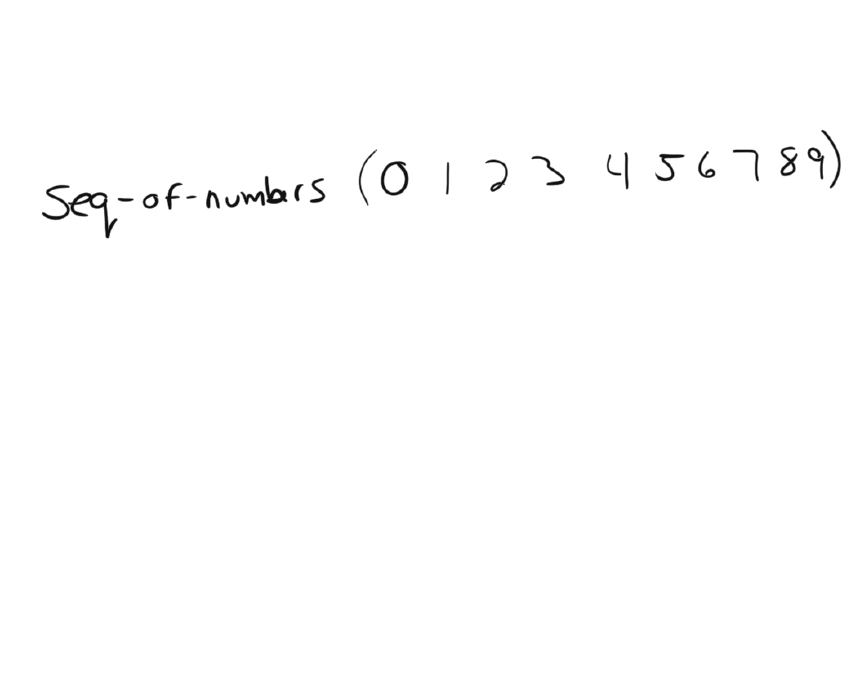 Seq-of-numbars (0 1 2 3 4 5 6 7 8 9)